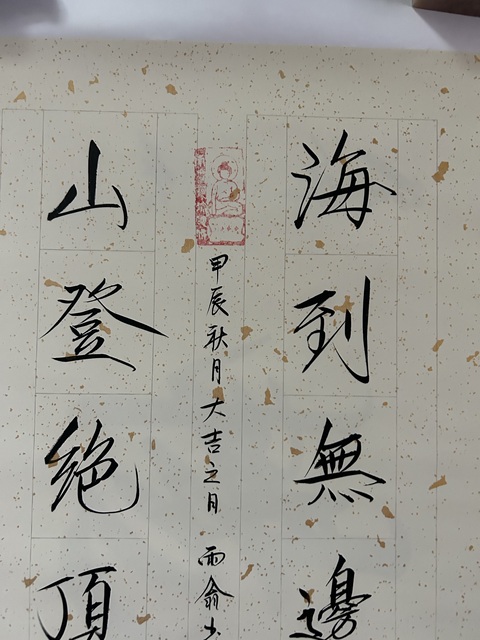 海到無邊
山登絶頂
甲辰秋月大吉之日 雨俞